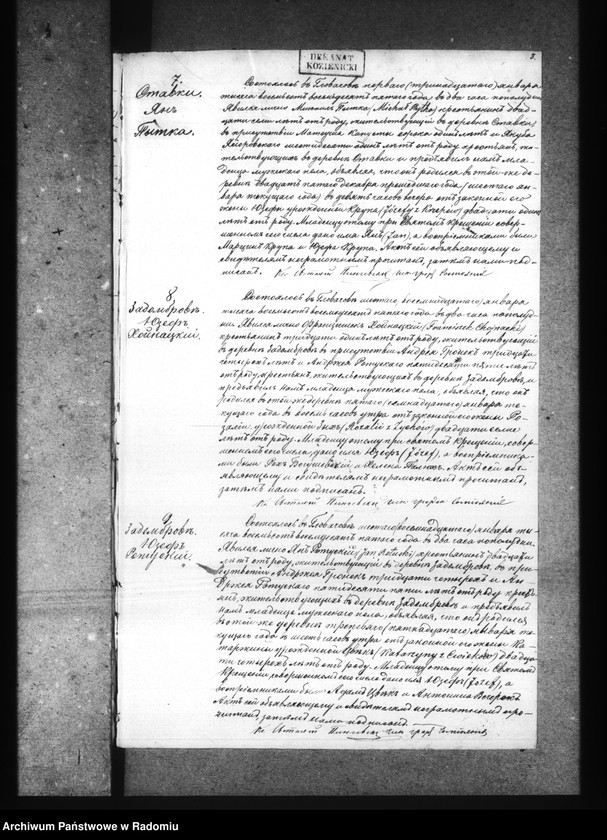 DEKANAT
KOZIENICKI
3.
7.
Ставки.
Янъ
Пытка.
Состоялось въ Гловачовѣ перваго (тринадцатаго) января
тысяча восемьсотъ восемьдесятъ пятаго года въ два часа пополудни.
Явился лично Михаилъ Пытка (Michał Pytka) крестьянинъ двад-
цати семи лѣтъ отъ роду, жительствующій въ деревни Ставки
въ присутствіи Матеуша Капусты сорока одинъ лѣтъ и Якуба
шестидесяти одинъ лѣтъ отъ роду крестьянъ, жи-
тельствующихъ въ деревни Ставки и предъявилъ намъ мла-
денца мужескаго пола, объявляя, что онъ родился въ той-же де-
ревни двадцать пятаго декабря прошедшаго года (шестаго ян-
варя текущаго года) въ девять часовъ вечера отъ законной его
жены Юзефы урожденной Крупа (Józefy z Krupów) двадцати одинъ
лѣтъ отъ роду. Младенцу этому при Святомъ Крещеніи совер-
шонномъ сего числа дано имя Янъ (Jan), а воспріемниками были
Марцинъ Крупа и Юзефа Крупа. Актъ сей объявляющему и
свидѣтелямъ неграмотнымъ прочитанъ, затѣмъ нами под-
писанъ.
8
Задомбровъ.
Юзефъ
Хойнацкій.
Состоялось въ Гловачовѣ шестаго (восемнадцатаго) января
тысяча восемьсотъ восемьдесятъ пятаго года въ два часа пополуд-
ни. Явился лично Францишекъ Хойнацкій (Franciszek Chojnacki)
крестьянинъ тридцати одинъ лѣтъ отъ роду, жительствующій
въ деревни Задомбровъ въ присутствіи Андрея Гронекъ тридцати
четырехъ лѣтъ и Андржея Ратускаго пятидесяти пяти лѣтъ
отъ роду, крестьянъ, жительствующихъ въ деревни Задомбровъ, и
предъявилъ намъ младенца мужескаго пола, объявляя, что онъ
родился въ той-же деревни пятаго (семнадцатаго) января те-
кущаго года въ восемь часовъ утра отъ законной его жены Ро-
заліи, урожденной двадцати семи
лѣтъ отъ роду. Младенцу этому при святомъ Крещеніи, совер-
шонномъ сего числа, дано имя Юзефъ (Józef), а воспріемника-
ми были Рохъ и Хелена. Актъ сей объ-
являющему и свидѣтелямъ неграмотнымъ прочитанъ,
затѣмъ нами подписанъ.
9
Задомбровъ.
Юзефъ
Ратускій.
Состоялось въ Гловачовѣ шестаго (восемнадцатаго) января ты-
сяча восемьсотъ восемьдесятъ пятаго года въ два часа пополудни.
Явился лично Янъ Ратускій (Jan Ratuski) крестьянинъ двадцати
лѣтъ отъ роду, жительствующій въ деревни Задомбровъ, въ при-
сутствіи Андржея Гронекъ тридцати четырехъ и Ан-
држея Ратускаго пятидесяти пяти лѣтъ отъ роду кресть-
янъ, жительствующихъ въ деревни Задомбровъ и предъявилъ
намъ младенца мужескаго пола, объявляя, что онъ родился
въ той-же деревни третьяго (пятнадцатаго) января те-
кущаго года въ шесть часовъ утра отъ законной его жены Ка-
таржины урожденной двадца-
ти четырехъ лѣтъ отъ роду. Младенцу этому при Святомъ
Крещеніи, совершонномъ сего числа дано имя Юзефъ (Józef), а
воспріемниками были Адамъ и Антонина.
Актъ сей объявляющему и свидѣтелямъ неграмотнымъ про-
читанъ, затѣмъ нами подписанъ.
Archiwum Państwowe w Radomiu